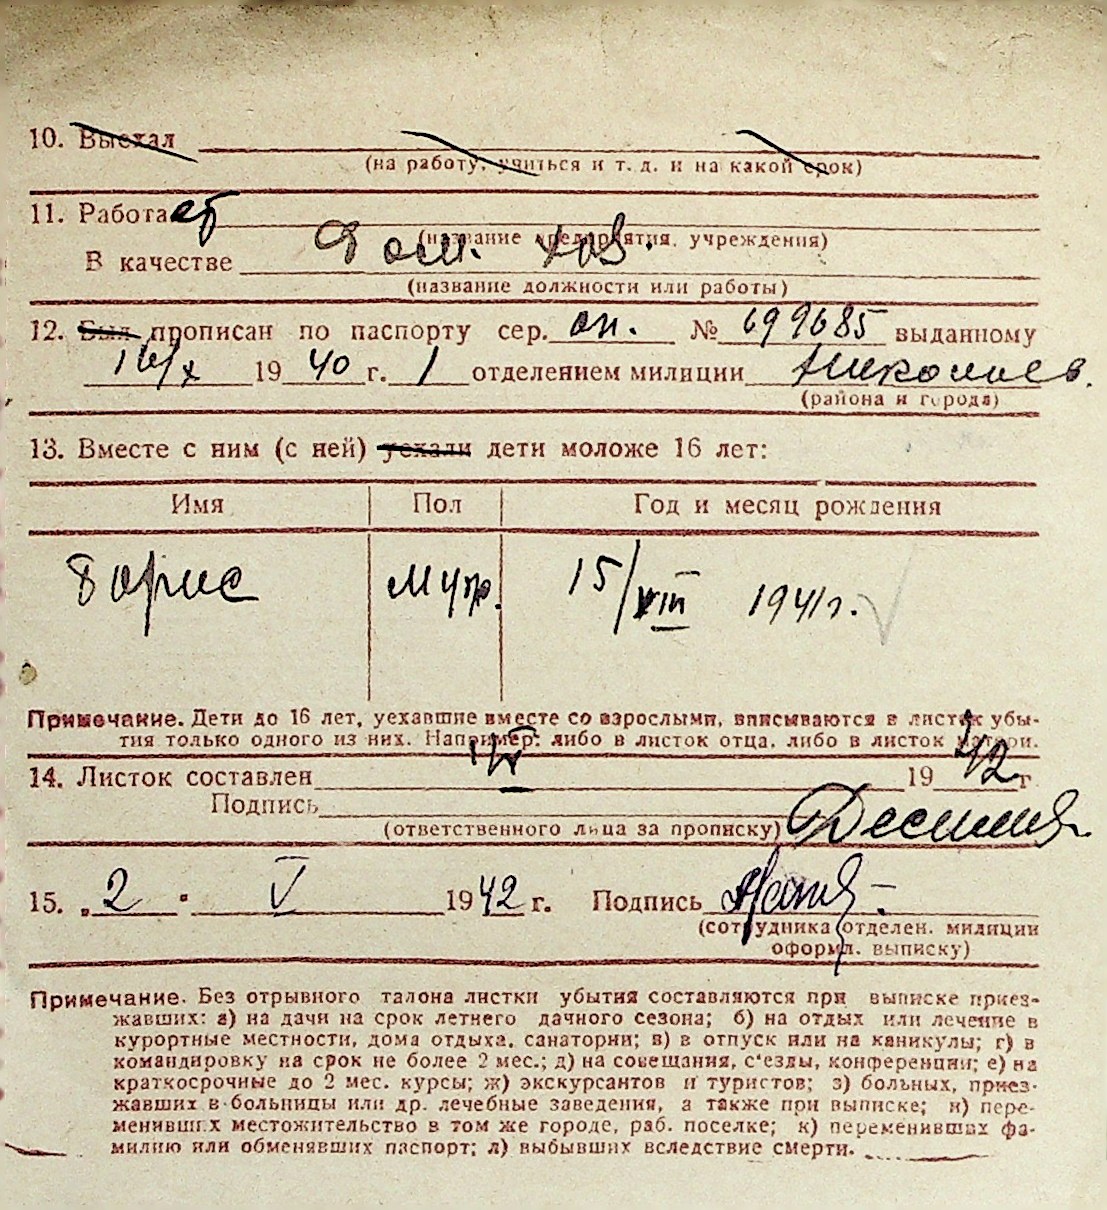 10. Выехал
(на работу, учиться и т. д. и на какой срок)
11. Работает
(название предприятия, учреждения)
Дом. хоз.
В качестве
(название должности или работы)
12. Был прописан по паспорту сер. № 699685 выданному
16/X 1940 г. 1 отделением милиции Николаев.
(района и города)
13. Вместе с ним (с ней) уехали дети моложе 16 лет:
Имя Пол Год и месяц рождения
Борис Муж. 15/VIII 1941 г.
Примечание. Дети до 16 лет, уехавшие вместе со взрослыми, вписываются в листок убы-
тия только одного из них. Например: либо в листок отца, либо в листок матери.
14. Листок составлен 1942 г.
Подпись
(ответственного лица за прописку)
15. „2" V 1942 г. Подпись
(сотрудника отделен. милиции
оформл. выписку)
Примечание. Без отрывного талона листки убытия составляются при выписке приез-
жавших: а) на дачи на срок летнего дачного сезона; б) на отдых или лечение в
курортные местности, дома отдыха, санатории; в) в отпуск или на каникулы; г) в
командировку на срок не более 2 мес.; д) на совещания, с'езды, конференции; е) на
краткосрочные до 2 мес. курсы; ж) экскурсантов и туристов; з) больных, приез-
жавших в больницы или др. лечебные заведения, а также при выписке; и) пере-
менивших местожительство в том же городе, раб. поселке; к) переменивших фа-
милию или обменявших паспорт; л) выбывших вследствие смерти.